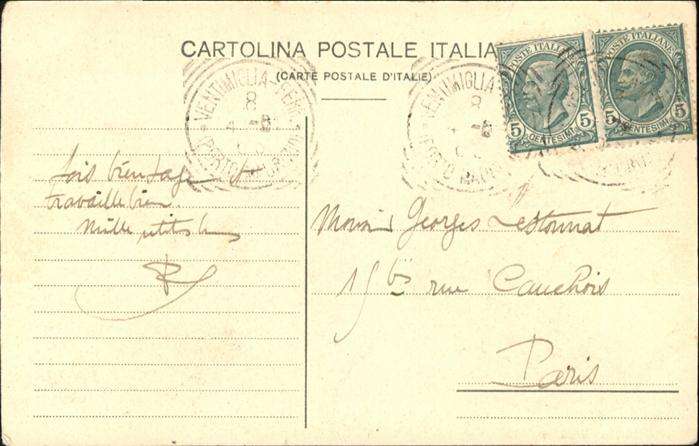 CARTOLINA POSTALE ITALIANA
(CARTE POSTALE D'ITALIE)
VENTIMIGLIA-
8
VENTIMIGLIA-
8
POSTE ITALIANE
5 CENTESIMI 5
POSTE ITALIANE
5 CENTESIMI 5
Sois bien sage et
travaille bien
Mille
Georges
15 bis rue Cauchois
Paris